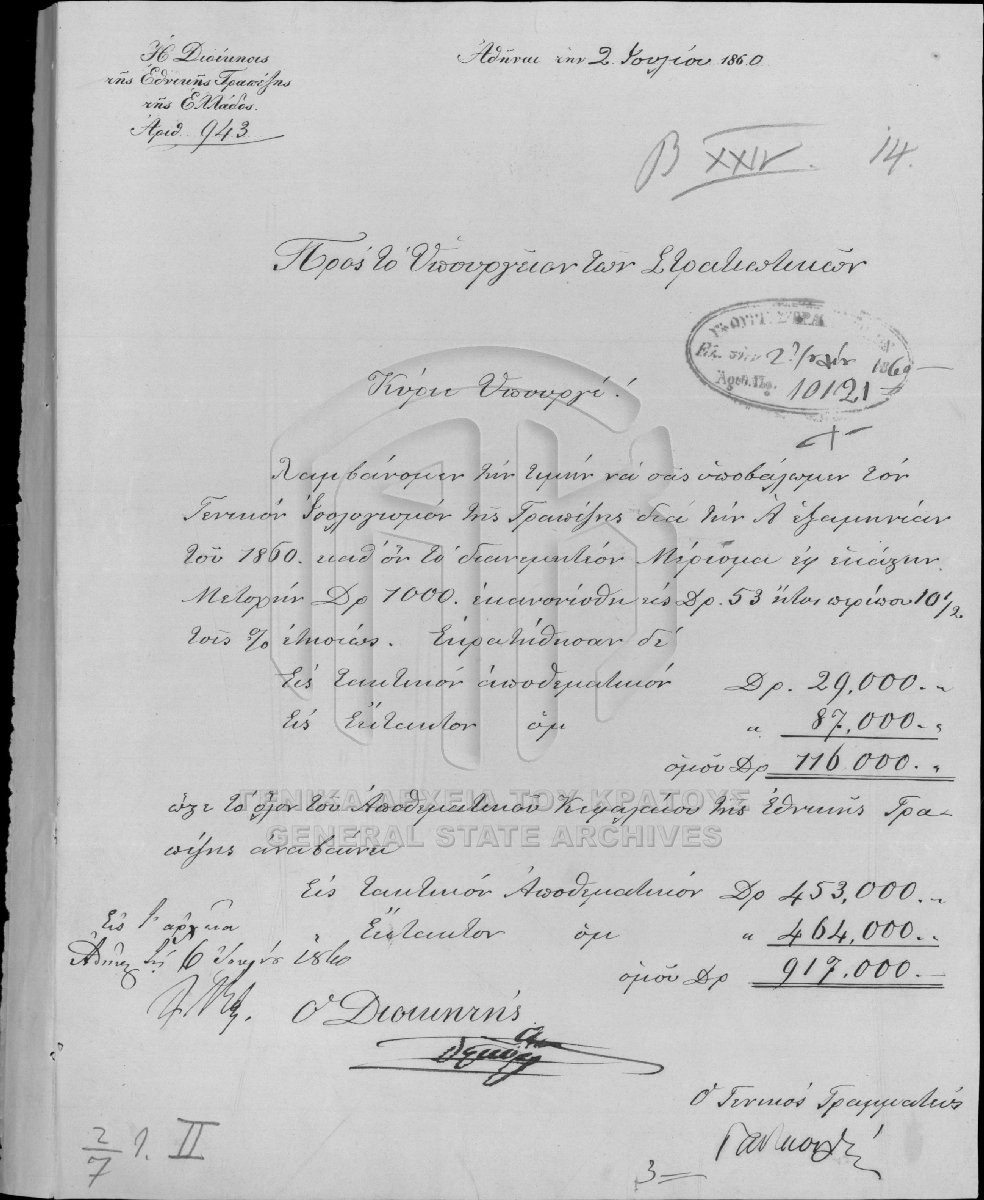 Ἡ Διοίκησις
τῆς Ἐθνικῆς Τραπέζης
τῆς Ἑλλάδος.
Ἀριθ. 943
Ἀθῆναι τὴν 2 Ἰουλίου 1860
Β XXIV. 14.
Πρὸς τὸ Ὑπουργεῖον τῶν Στρατιωτικῶν
2 1860
Ἀριθ. Πρ. 10121
Κύριε Ὑπουργέ!
Λαμβάνομεν τὴν τιμὴν νὰ σᾶς ὑποβάλωμεν τὸν
Γενικὸν Ἰσολογισμὸν τῆς Τραπέζης διὰ τὴν Α ἑξαμηνίαν
τοῦ 1860. καθ' ὃν τὸ διανεμητέον Μέρισμα ἐφ' ἑκάστην
Μετοχὴν Δρ 1000. ἐκανονίσθη εἰς Δρ. 53 ἤτοι περίπου 10 1/2
τοῖς % ἐτησίως. Ἐκρατήθησαν δὲ
Εἰς τακτικὸν ἀποθεματικὸν Δρ. 29,000. „
Εἰς Ἔκτακτον ὁμ „ 87,000. „
ὁμοῦ Δρ 116,000. „
ὥστε τὸ ὅλον τοῦ Ἀποθεματικοῦ Κεφαλαίου τῆς Ἐθνικῆς Τρα-
πέζης ἀναβαίνει
Εἰς τακτικὸν Ἀποθεματικὸν Δρ 453,000. „
„ Ἔκτακτον ὁμ „ 464,000. „
ὁμοῦ Δρ 917,000. —
Εἰς τ' ἀρχεῖα
Ἀθῆν τῇ 6 Ἰουλίου 1860
Ὁ Διοικητής
Ὁ Γενικὸς Γραμματεύς
3 —
2/7 II
ΓΕΝΙΚΑ ΑΡΧΕΙΑ ΤΟΥ ΚΡΑΤΟΥΣ
GENERAL STATE ARCHIVES